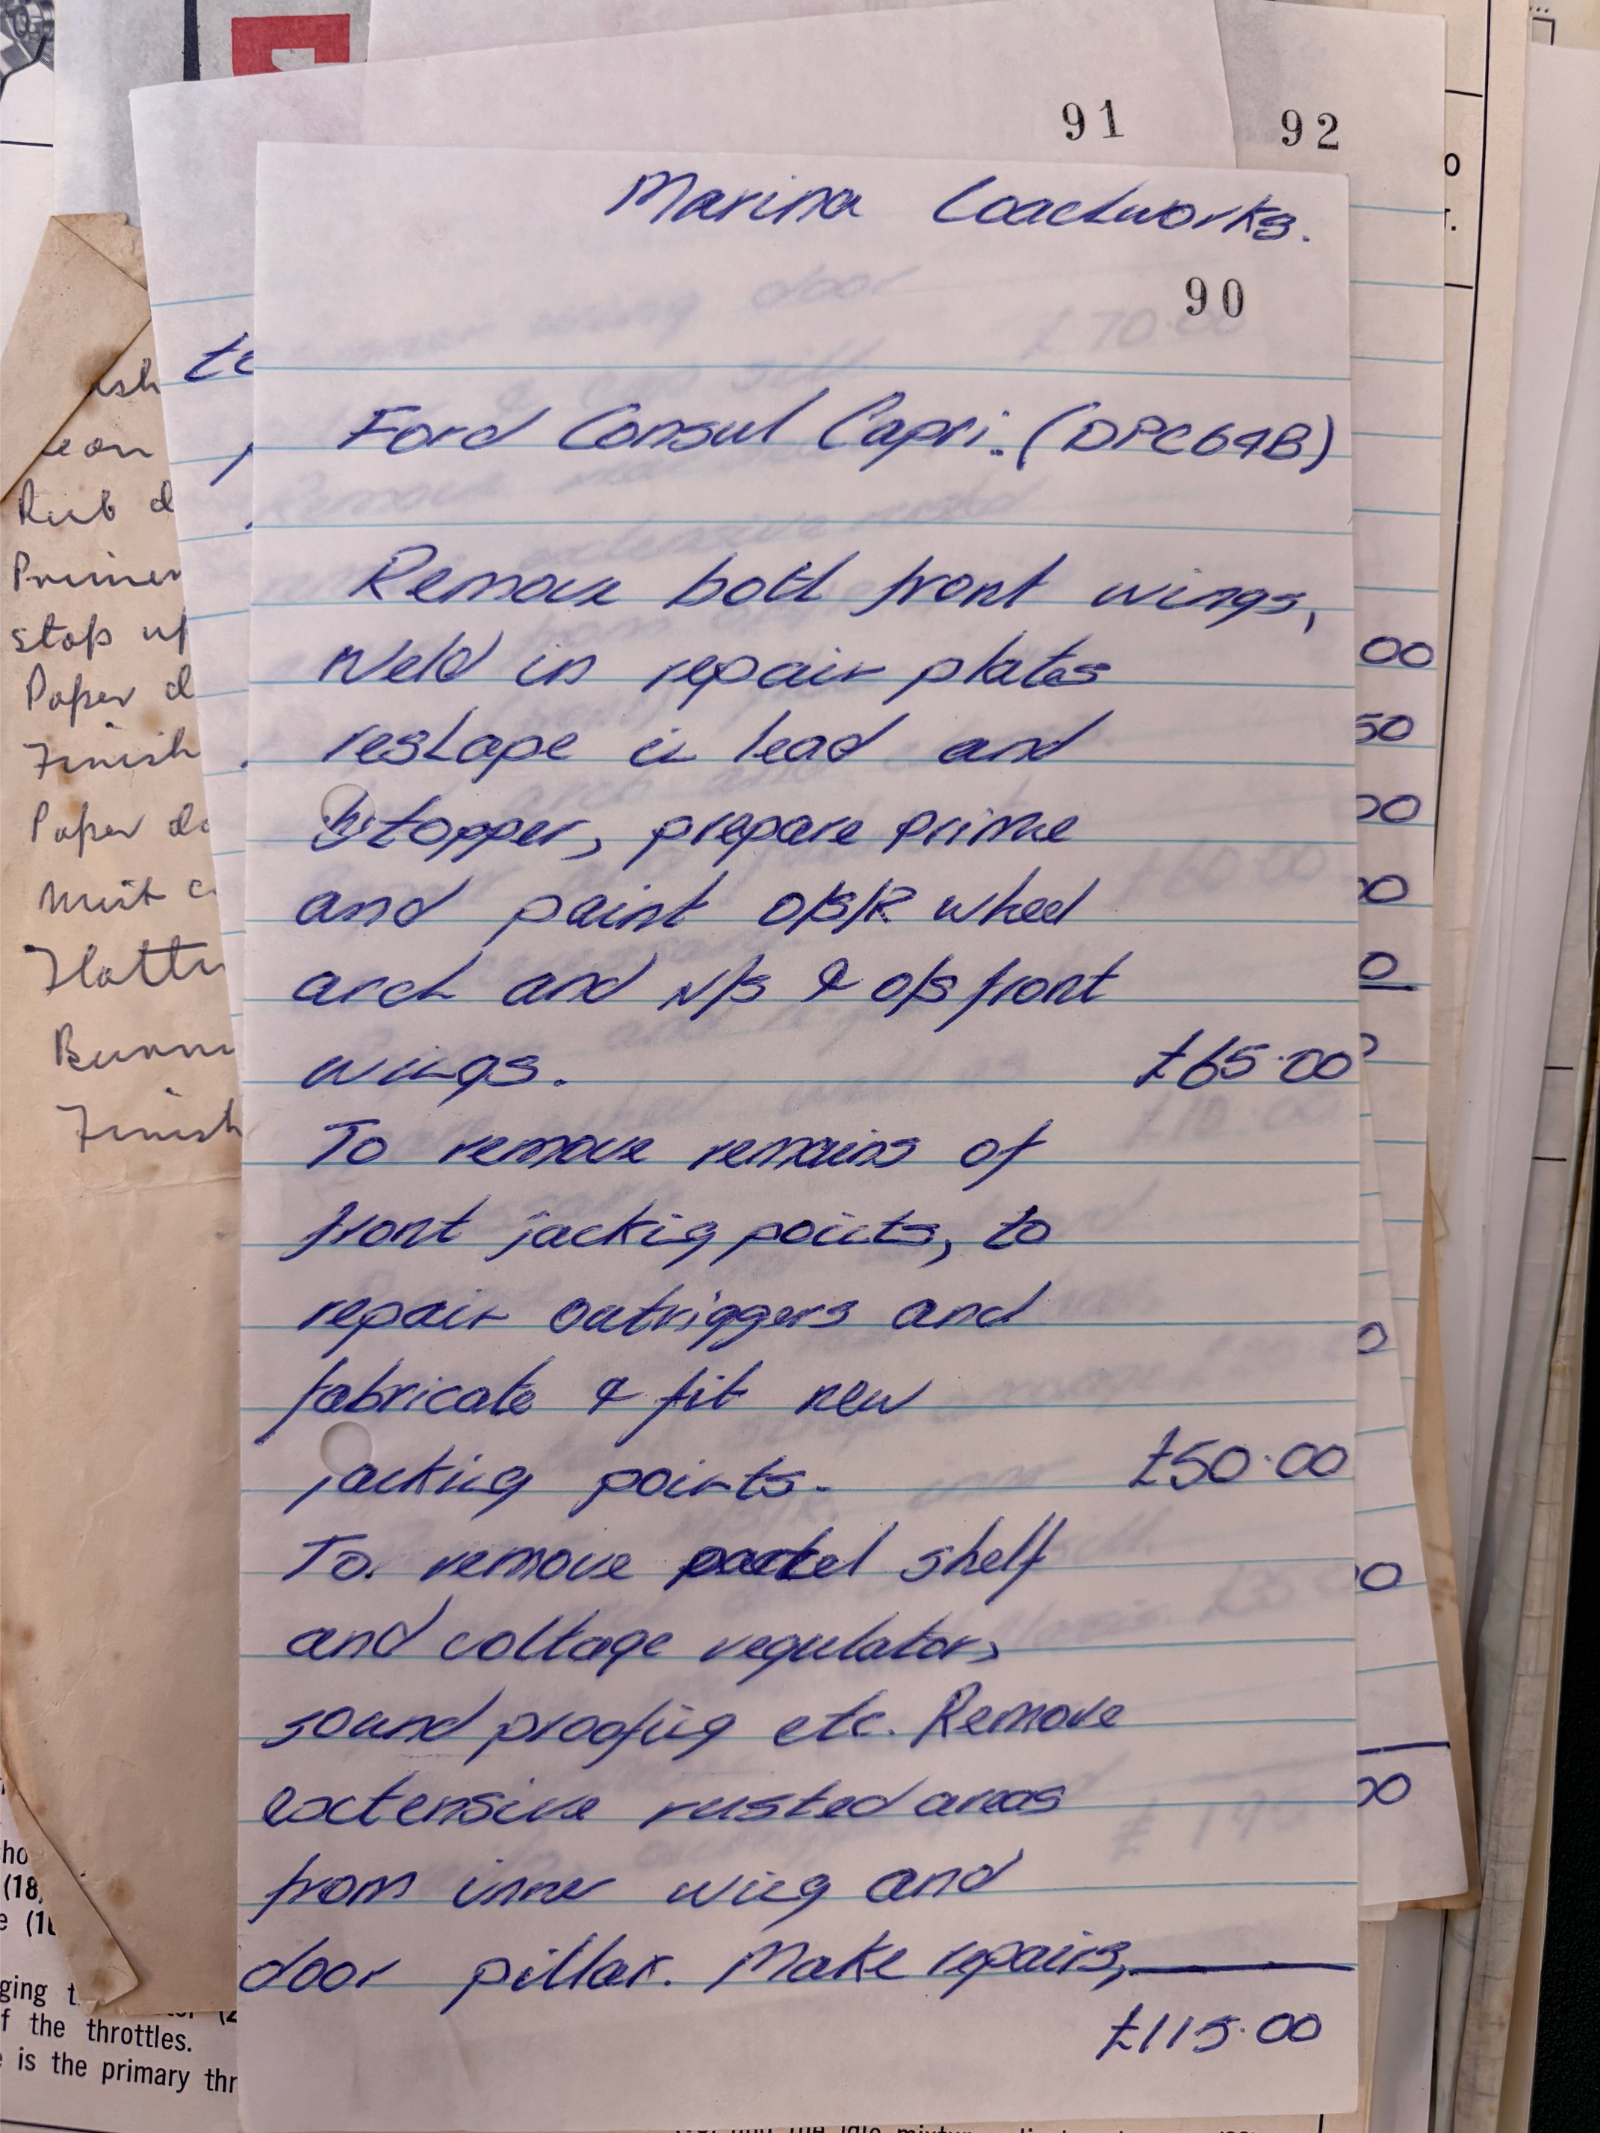 91
92
Marina Coachworks.
90
Ford Consul Capri. (DPC649B)
Remove both front wings,
Weld in repair plates
reshape in lead and
stopper, prepare prime
and paint o/s/R wheel
arch and N/s & o/s front
wings. £65.00
To remove remains of
front jacking points, to
repair outriggers and
fabricate & fit new
jacking points. £50.00
To. remove parcel shelf
and voltage regulator,
sound proofing etc. Remove
extensive rusted areas
from inner wing and
door pillar. Make repairs,
£115.00
Rub d
Primer
stop up
Paper d
Finish
Paper do
Mist c
Flatti
Finish
00
50
00
00
0
0
00
(18,
ging t
f the throttles.
is the primary thr